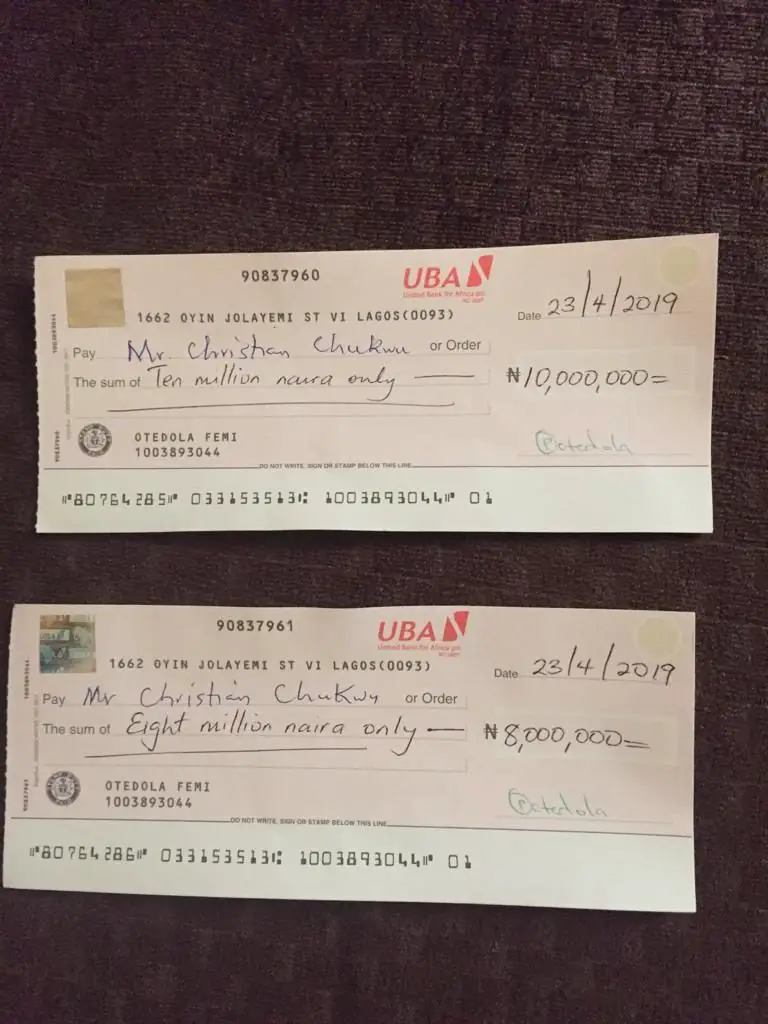 90837960
UBA
United Bank for Africa plc
1662 OYIN JOLAYEMI ST VI LAGOS(0093)
Date 23/4/2019
Pay Mr. Christian Chukwu or Order
The sum of Ten million naira only
₦10,000,000=
OTEDOLA FEMI
1003893044
Otedola
DO NOT WRITE, SIGN OR STAMP BELOW THIS LINE
⑈80764285⑈ 033153513⑆ 1003893044⑈ 01
90837961
UBA
United Bank for Africa plc
1662 OYIN JOLAYEMI ST VI LAGOS(0093)
Date 23/4/2019
Pay Mr Christian Chukwu or Order
The sum of Eight million naira only
₦8,000,000=
OTEDOLA FEMI
1003893044
Otedola
DO NOT WRITE, SIGN OR STAMP BELOW THIS LINE
⑈80764286⑈ 033153513⑆ 1003893044⑈ 01